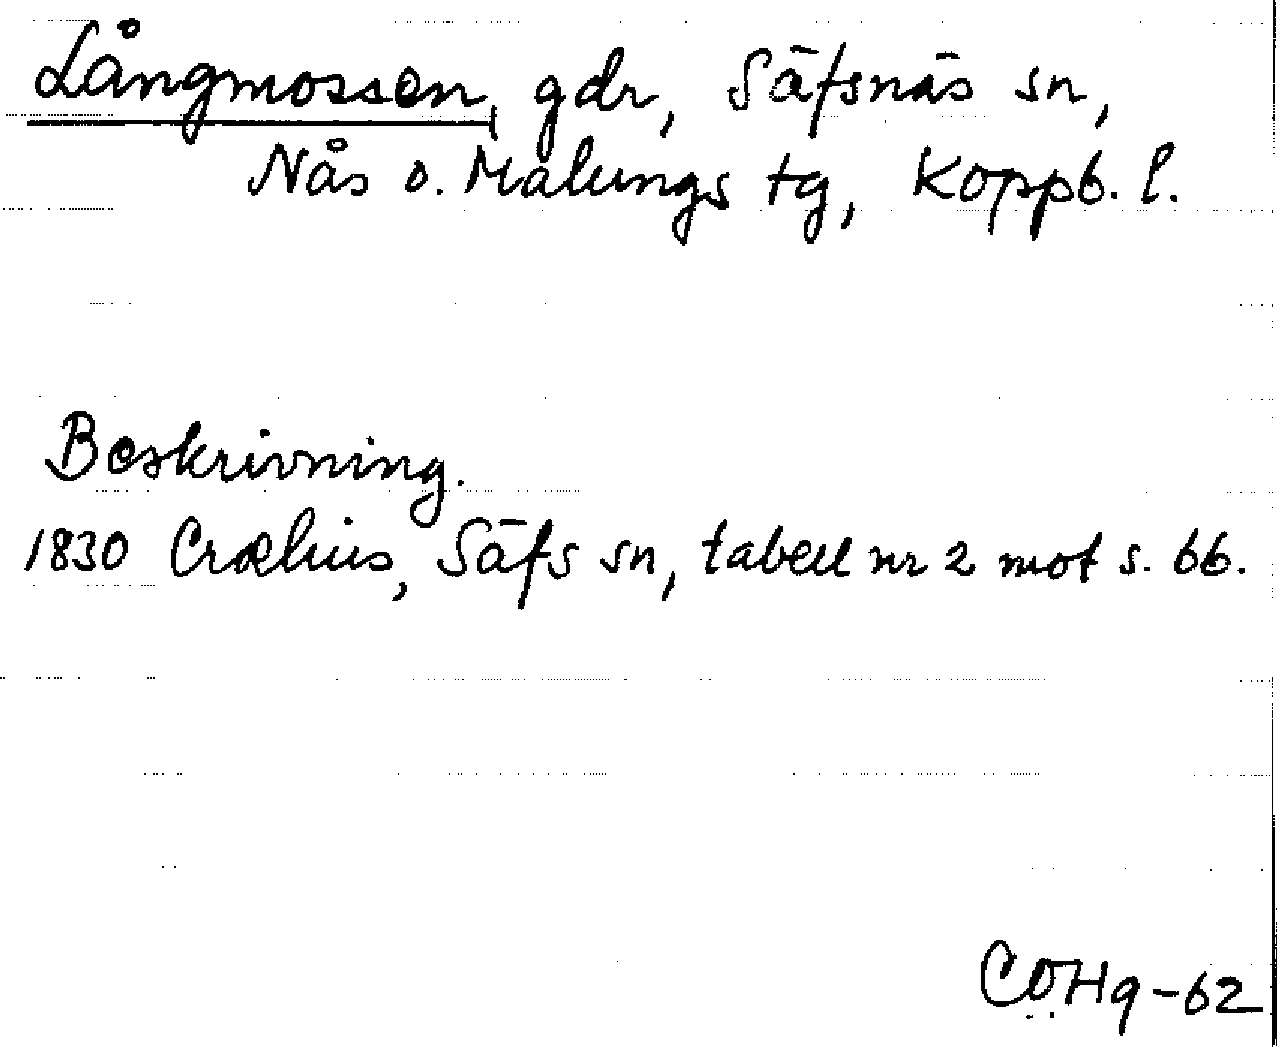 Långmossen, gdr, Säfsnäs sn,
Nås o. Malungs tg, Koppb. l.
Beskrivning.
1830 Crælius, Säfs sn, tabell nr 2 mot s. 66.
CÖHg-62